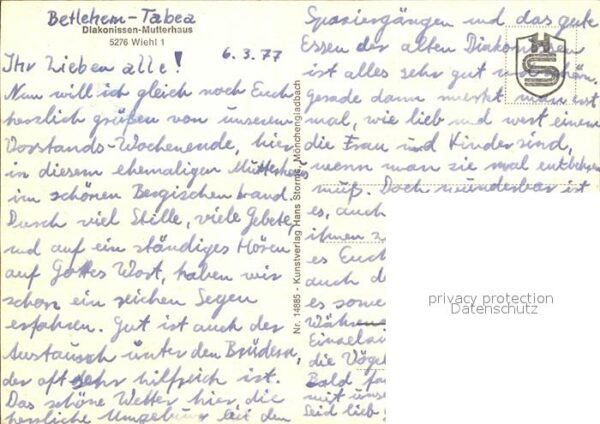 Betlehem-Tabea
Diakonissen-Mutterhaus
5276 Wiehl 1
6.3.77
Ihr Lieben alle!
Nun will ich gleich noch Euch
herzlich grüßen von unserem
Vorstands-Wochenende, hier
in diesem ehemaligen Mutterhaus
im schönen Bergischen Land.
Durch viel Stille, viele Gebete,
und auf ein ständiges Hören
auf Gottes Wort, haben wir
schon ein reichen Segen
erfahren. Gut ist auch der
Austausch unter den Brüdern,
der oft sehr hilfreich ist.
Das schöne Wetter hier, die
herrliche Umgebung mit den
Nr. 14885 - Kunstverlag Hans Storms, Mönchengladbach
Spaziergängen und das gute
Essen der alten Diakonissen
ist alles sehr gut und schön.
Gerade dann merkt man erst
mal, wie lieb und wert einem
die Frau und Kinder sind,
wenn man sie mal entbehren
muß. Doch wunderbar ist
es, auch
ihnen z
es Euch
auch d
es sowe
Während
Einzelnen
die Vögel
Bald
mit uns
Seid lieb
HS
privacy protection
Datenschutz